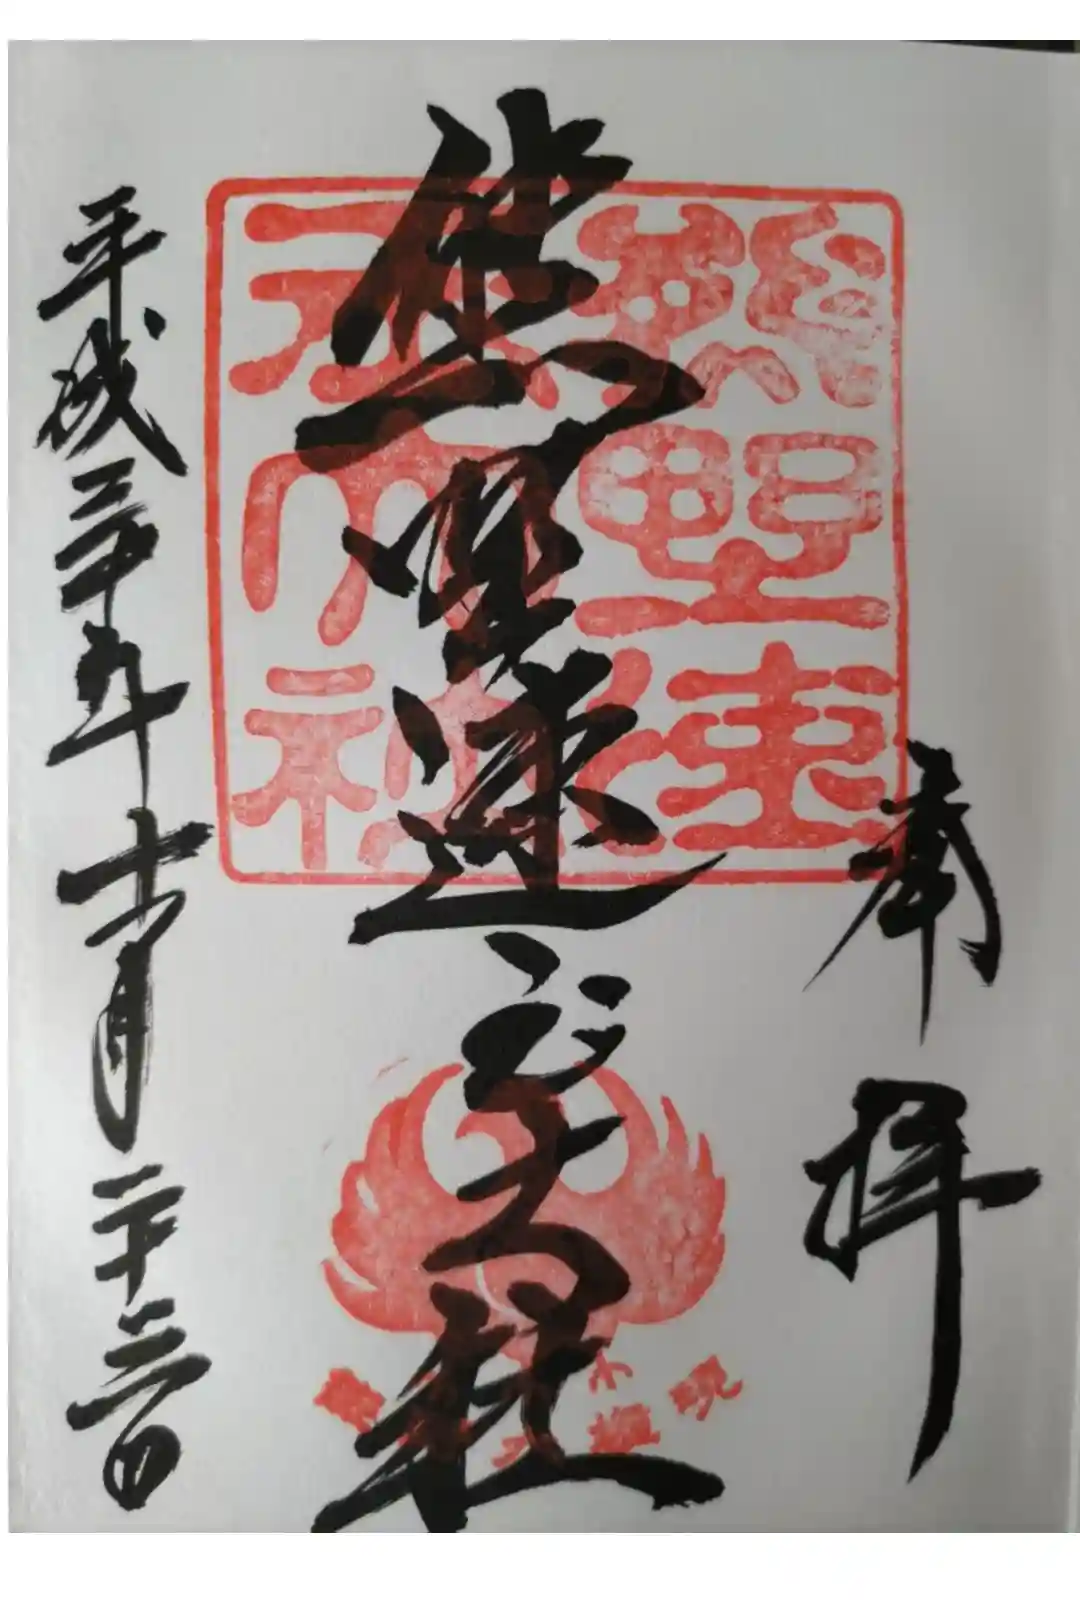 奉拝
熊野速
玉大神
熊野速玉大社
平成三十年十一月二十三日